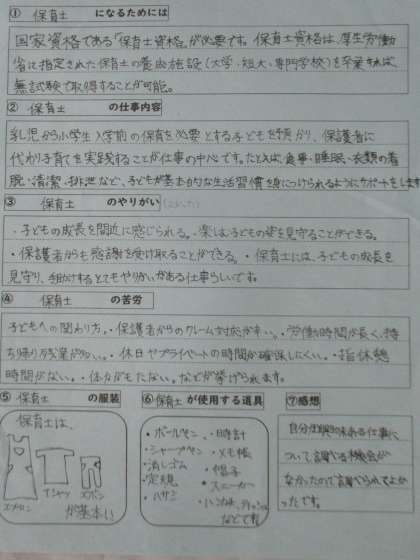 ① 保育士 になるためには
国家資格である「保育士資格」が必要です。保育士資格は、厚生労働
省に指定された保育士の養成施設(大学・短大・専門学校)を卒業すれば、
無試験で取得することが可能。
② 保育士 の仕事内容
乳児から小学生入学前の保育を必要とする子どもを預かり、保護者に
代わり子育てを実践することが仕事の中心です。たとえば、食事・睡眠・衣類の着
脱・清潔・排泄など、子どもが基本的な生活習慣を身につけられるようにサポートをします
③ 保育士 のやりがい
・子どもの成長を間近に感じられる。・楽しい子どもの姿を見守ることができる。
・保護者からも感謝を受け取ることができる。・保育士には、子どもの成長を
見守り、手助けするとてもやりがいがある仕事らしいです。
④ 保育士 の苦労
子どもへの関わり方。・保護者からのクレーム対応が辛い。・労働時間が長く、持
ち帰り残業が多い。・休日やプライベートの時間が確保しにくい。・昼休憩
時間がない。・体力がもたない。などが挙げられます。
⑤ 保育士 の服装
保育士は、
エプロン
Tシャツ
ズボン
が基本い
⑥ 保育士 が使用する道具
・ボールペン
・シャープペン
・消しゴム
・定規
・ハサミ
・時計
・メモ帳
・帽子
・スニーカー
・ハンカチ、ティッシュ
などです
⑦感想
自分が興味ある仕事に
ついて調べる機会が
なかったので調べられてよか
ったです。